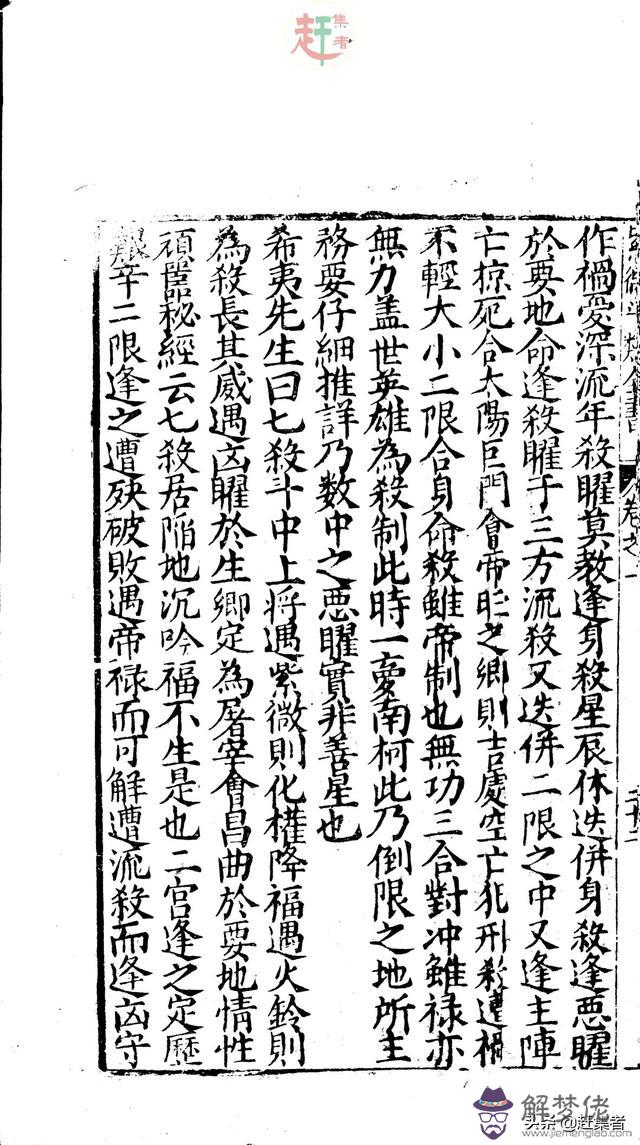 赶集者
作禍愛深流年殺曜莫教逢身殺星辰休迭併身殺逢悪曜
於要地命逢殺曜于三方流殺又迭併二限之中又逢主陣
亡掠死合太陽巨門會帝旺之鄉則吉處空亡犯刑殺遭禍
不輕大小二限合身命殺雖帝制也無功三合對冲雖禄亦
無力盖世英雄為殺制此時一夢南柯此乃倒限之地所主
務要仔細推詳乃数中之悪曜實非善星也
希夷先生曰七殺斗中上將遇紫微則化權降福遇火鈴則
為殺長其威遇凶曜於生鄉定為屠宰會昌曲於要地情性
頑嚚秘經云七殺居陷地沉吟福不生是也二宮逢之定歷
艱辛二限逢之遭殃破敗遇帝禄而可解遭流殺而逢凶守
解梦佬
头条@赶集者
www.jiemenglao.com